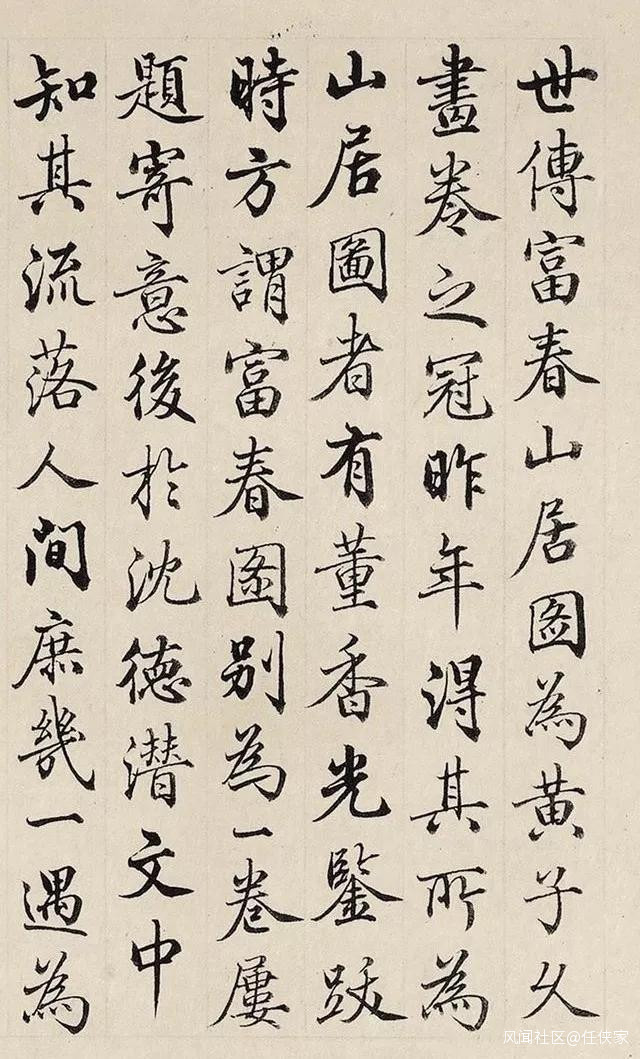 世傳富春山居圖為黄子久
畫卷之冠昨年得其所為
山居圖者有董香光鑒跋
時方謂富春圖别為一卷屢
題寄意後於沈德潛文中
知其流落人間庶幾一遇為
风闻社区@任侠家